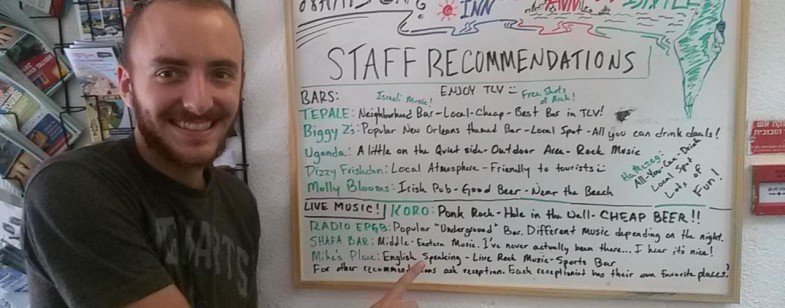 INN
STAFF RECOMMENDATIONS
BARS: ENJOY TLV
Israeli Music!
Free Shots of Arak!
TEPALE: Neighborhood Bar - Local - Cheap - Best Bar in TLV!
Biggy Z's: Popular New Orleans themed Bar - Local Spot - All you can drink deals!
Uganda: A little on the Quiet side - Outdoor Area - Rock Music
Dizzy Frishdan: Local Atmosphere - Friendly to tourists
Molly Blooms: Irish Pub - Good Beer - Near the Beach
All-You-Can-Drink
Local Spot
Lots of
Fun!
LIVE MUSIC! KORO: Punk Rock - Hole in the Wall - CHEAP BEER!!
RADIO EPGB: Popular "Underground" Bar. Different music depending on the night.
SHAFA BAR: Middle-Eastern Music. I've never actually been there... I hear it's nice!
Mike's Place: English Speaking - Live Rock Music - Sports Bar
For other recommendations ask reception. Each receptionist has their own favorite places!